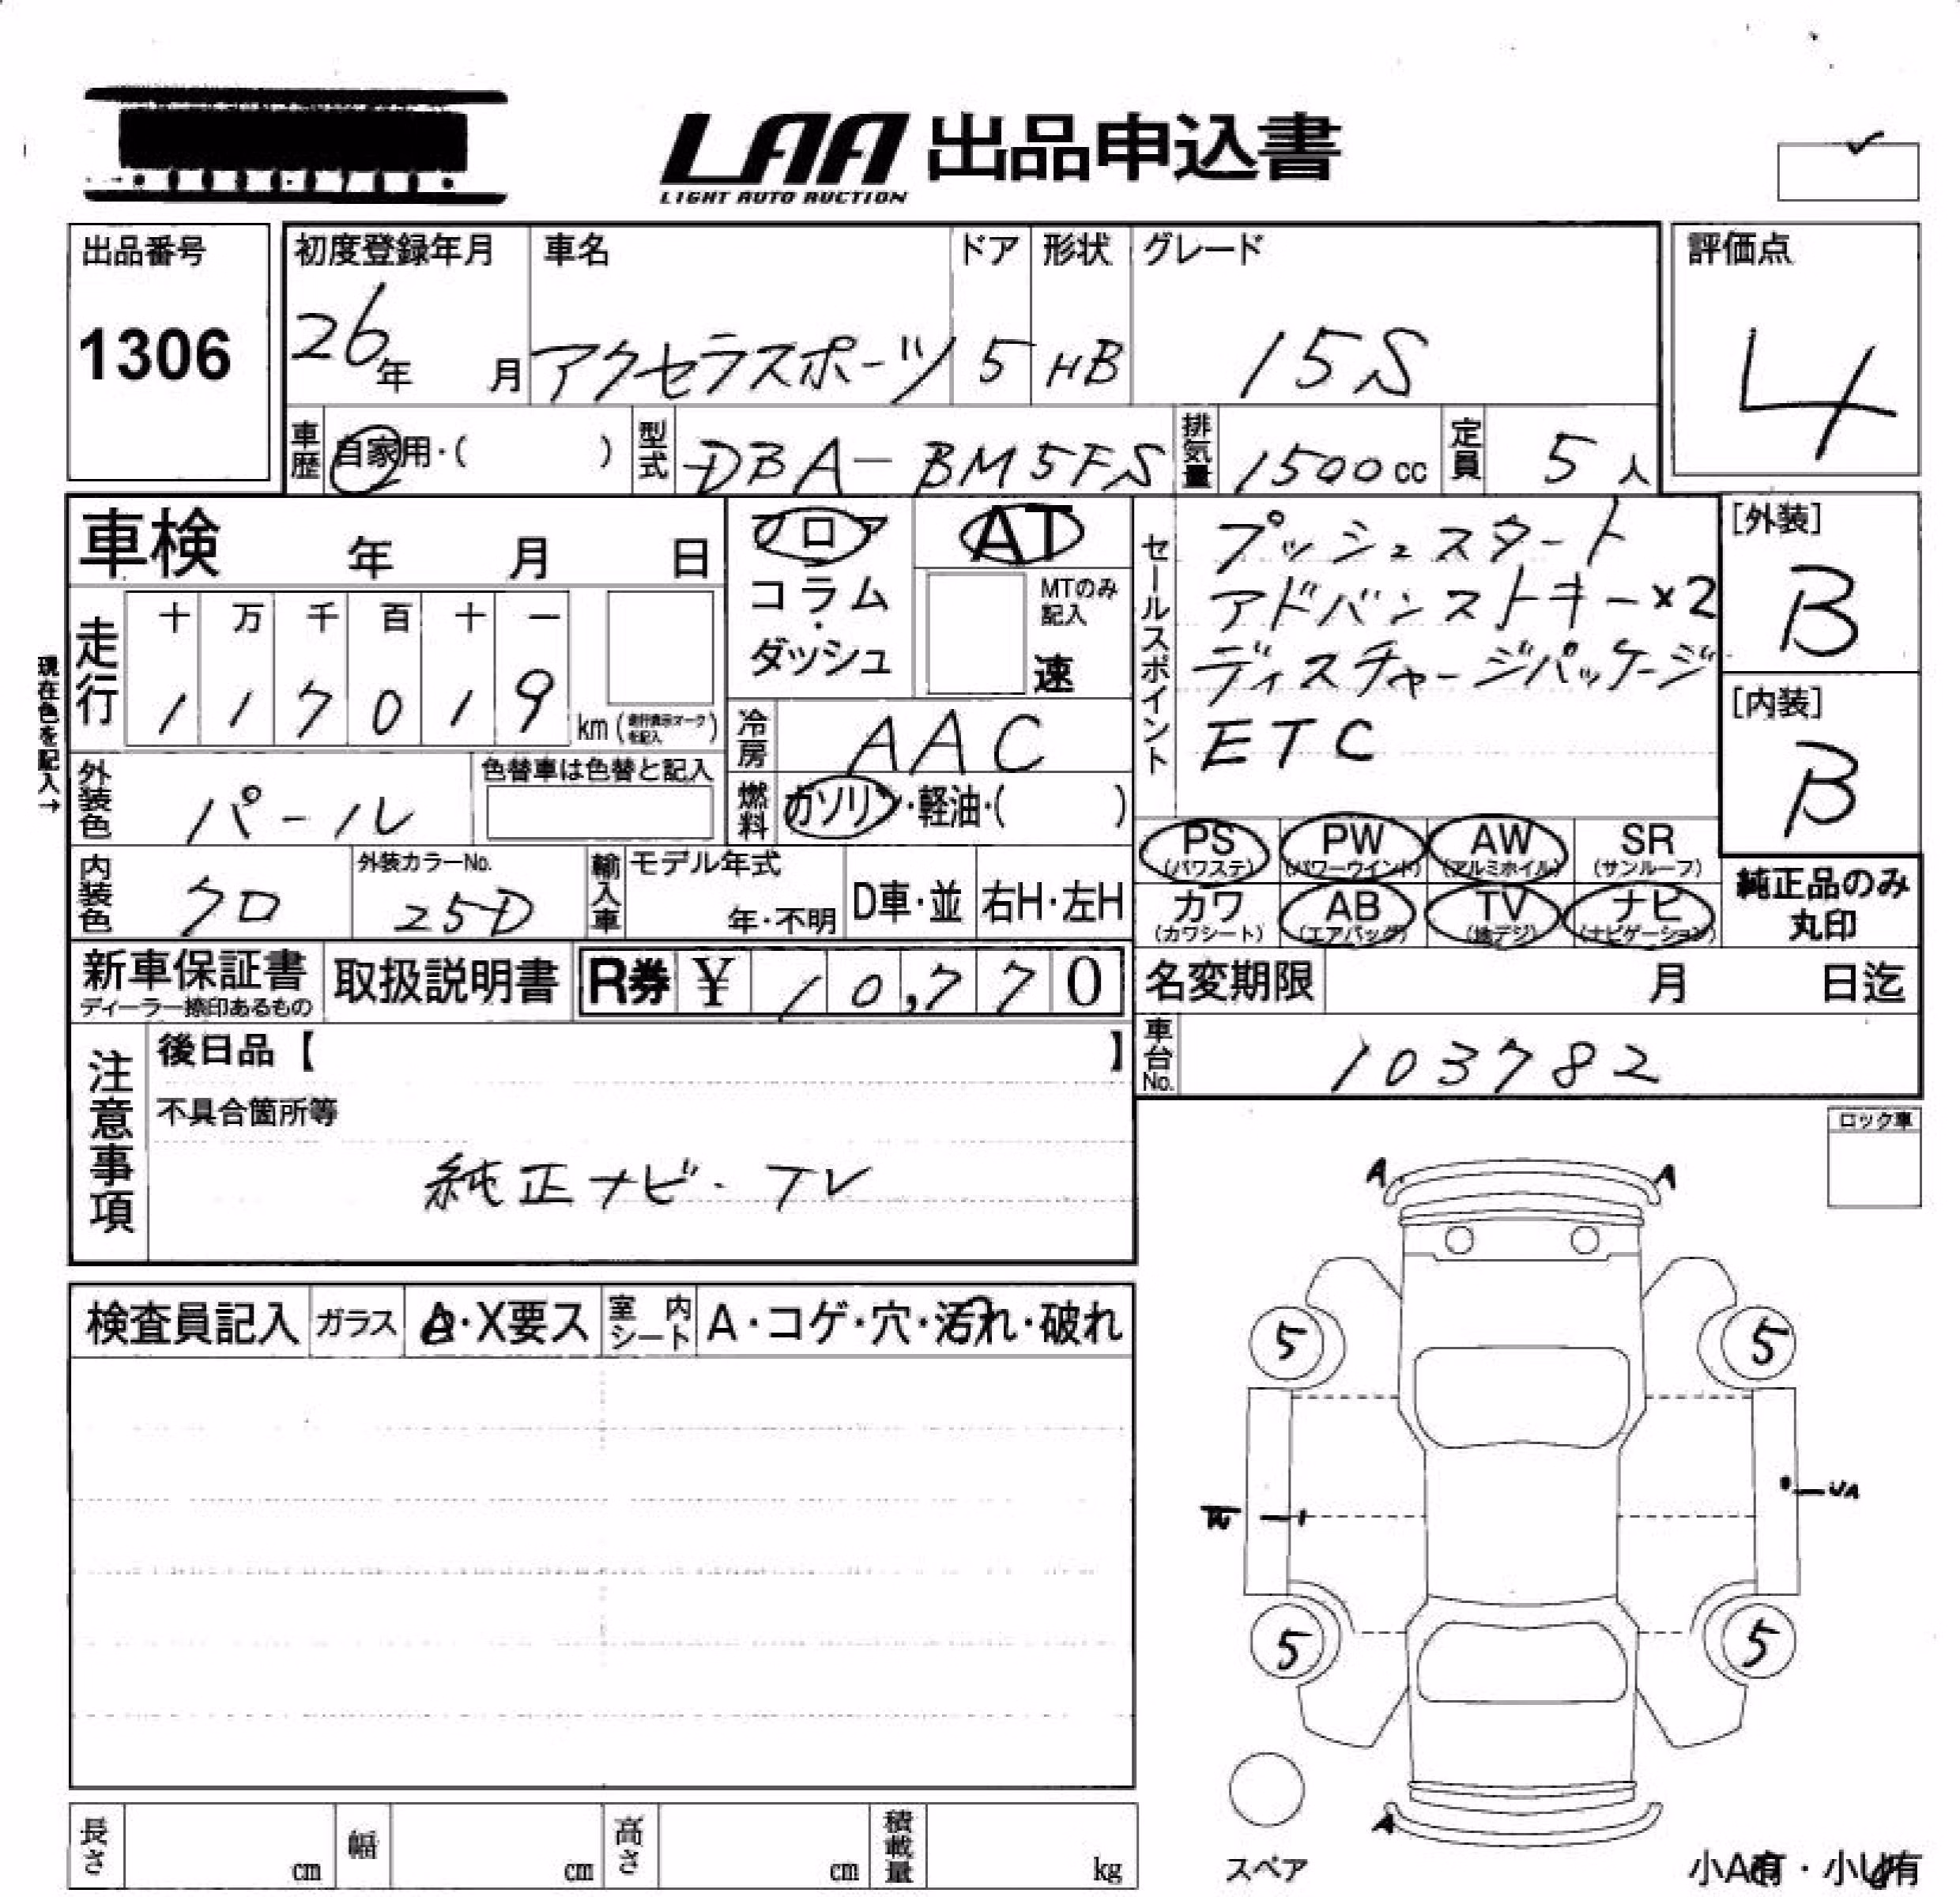 LAA 出品申込書
LIGHT AUTO AUCTION
出品番号
1306
初度登録年月
26年 月
車名
アクセラスポーツ
ドア
5
形状
HB
グレード
15S
評価点
4
車歴
自家用・( )
型式
DBA-BM5FS
排気量
1500cc
定員
5人
車検 年 月 日
フロア
コラム
・
ダッシュ
AT
MTのみ
記入
速
セールスポイント
プッシュスタート
アドバンストキー×2
ディスチャージパッケージ
ETC
[外装]
B
[内装]
B
現在色を記入→
走行
十 万 千 百 十 一
1 1 7 0 1 9
km (走行表示マークを記入)
冷房
AAC
外装色
パール
色替車は色替と記入
燃料
ガソリン・軽油・( )
PS (パワステ)
PW (パワーウインド)
AW (アルミホイル)
SR (サンルーフ)
カワ (カワシート)
AB (エアバッグ)
TV (地デジ)
ナビ (ナビゲーション)
純正品のみ
丸印
内装色
クロ
外装カラーNo.
25D
輸入車
モデル年式
年・不明
D車・並
右H・左H
新車保証書
ディーラー捺印あるもの
取扱説明書
R券 ¥ 10,770
名変期限 月 日迄
車台No.
103782
注意事項
後日品【 】
不具合箇所等
純正ナビ・TV
ロック車
A A
検査員記入
ガラス
A・X要ス
室内シート
A・コゲ・穴・汚れ・破れ
5 5
UA
5 5
A
スペア
小A有・小U有
長さ cm
幅 cm
高さ cm
積載量 kg